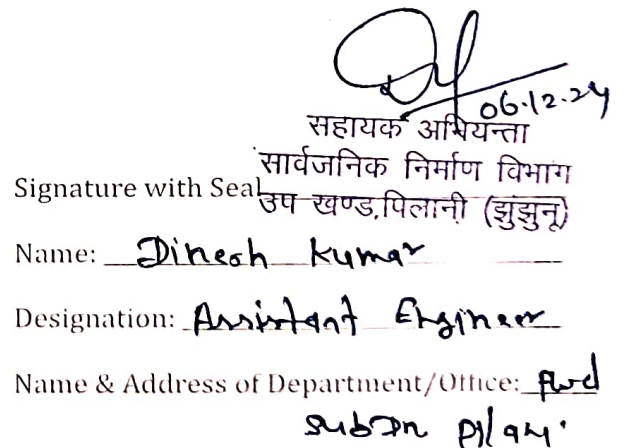 06.12.24
सहायक अभियन्ता
सार्वजनिक निर्माण विभाग
Signature with Seal
उप खण्ड,पिलानी (झुझुनू)
Name: Dinesh Kumar
Designation: Assistant Engineer
Name & Address of Department/Office: PWD
SubDn Pilani.